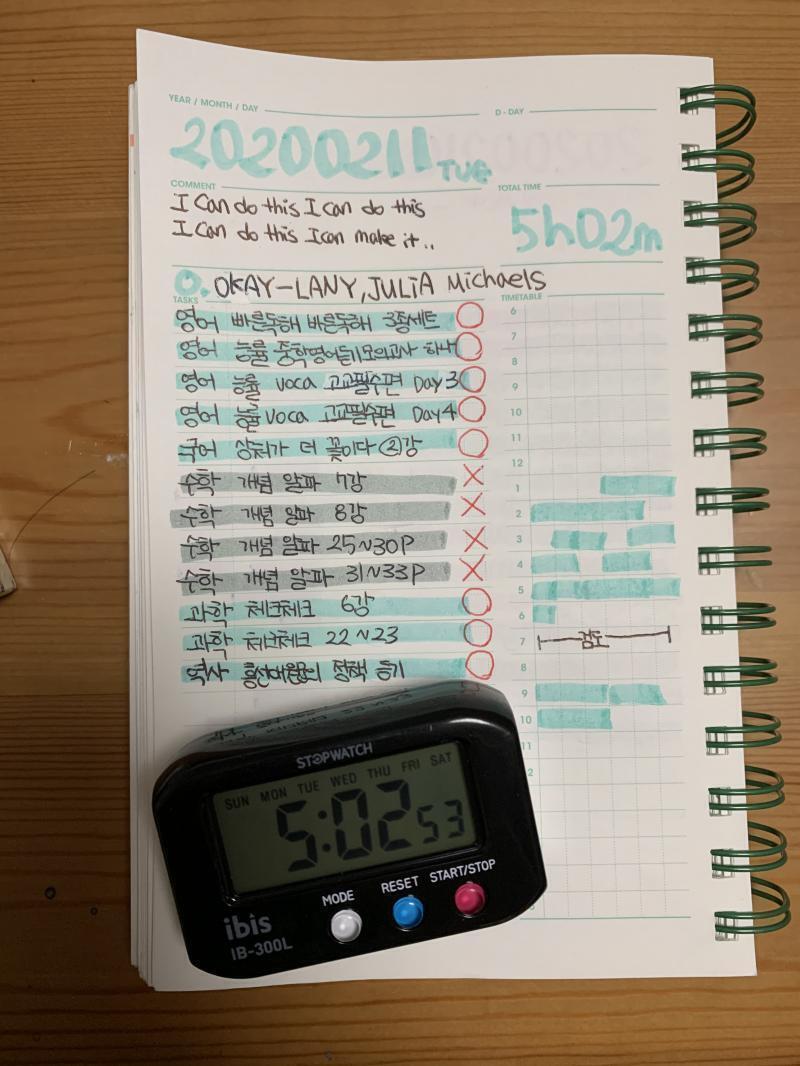 YEAR / MONTH / DAY
D - DAY
20200211 TUE
COMMENT
TOTAL TIME
I Can do this I can do this
I Can do this I can make it..
5h02m
O. OKAY-LANY, JULIA Michaels
TASKS
TIMETABLE
영어 빠른독해 바른독해 3종세트
영어 능률 중학영어듣기모의고사 하나
영어 능률 voca 고교필수편 Day 3
영어 능률 voca 고교필수편 Day 4
국어 상처가 더 꽃이다 ②강
수학 개념 알파 7강
수학 개념 알파 8강
수학 개념 알파 25~30P
수학 개념 알파 31~33P
과학 체크체크 6강
과학 체크체크 22~23
역사 흥선대원군의 정책 듣기
6
7
8
9
10
11
12
1
2
3
4
5
6
7 검도
8
9
10
11
12
STOPWATCH
SUN MON TUE WED THU FRI SAT
5:02 53
MODE RESET START/STOP
ibis
IB-300L